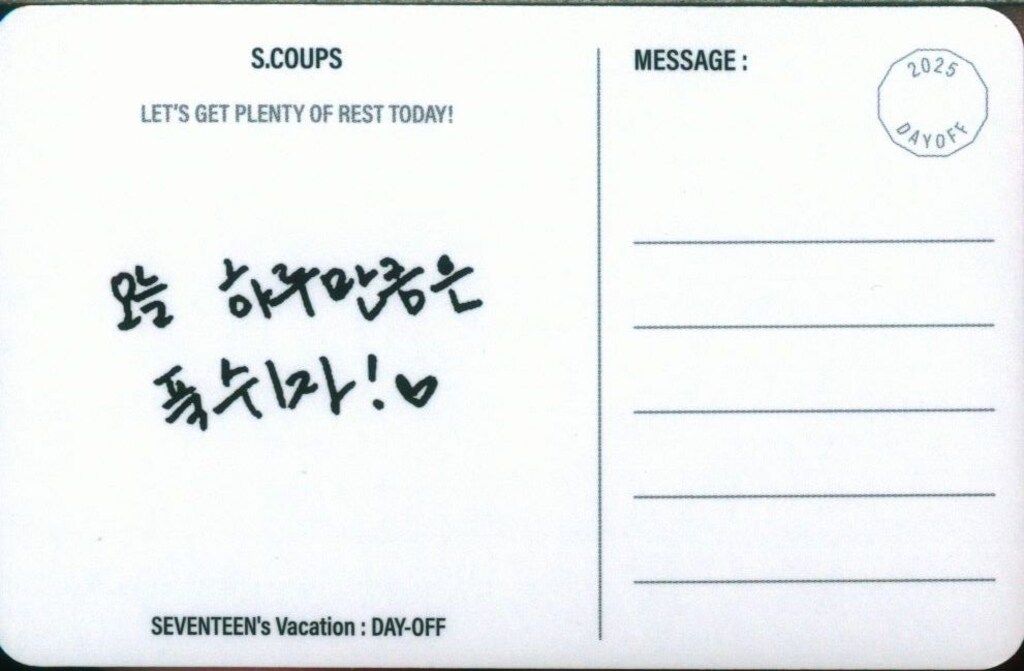 S.COUPS
LET'S GET PLENTY OF REST TODAY!
오늘 하루만큼은
푹 쉬자!♥
SEVENTEEN's Vacation : DAY-OFF
MESSAGE :
2025
DAYOFF